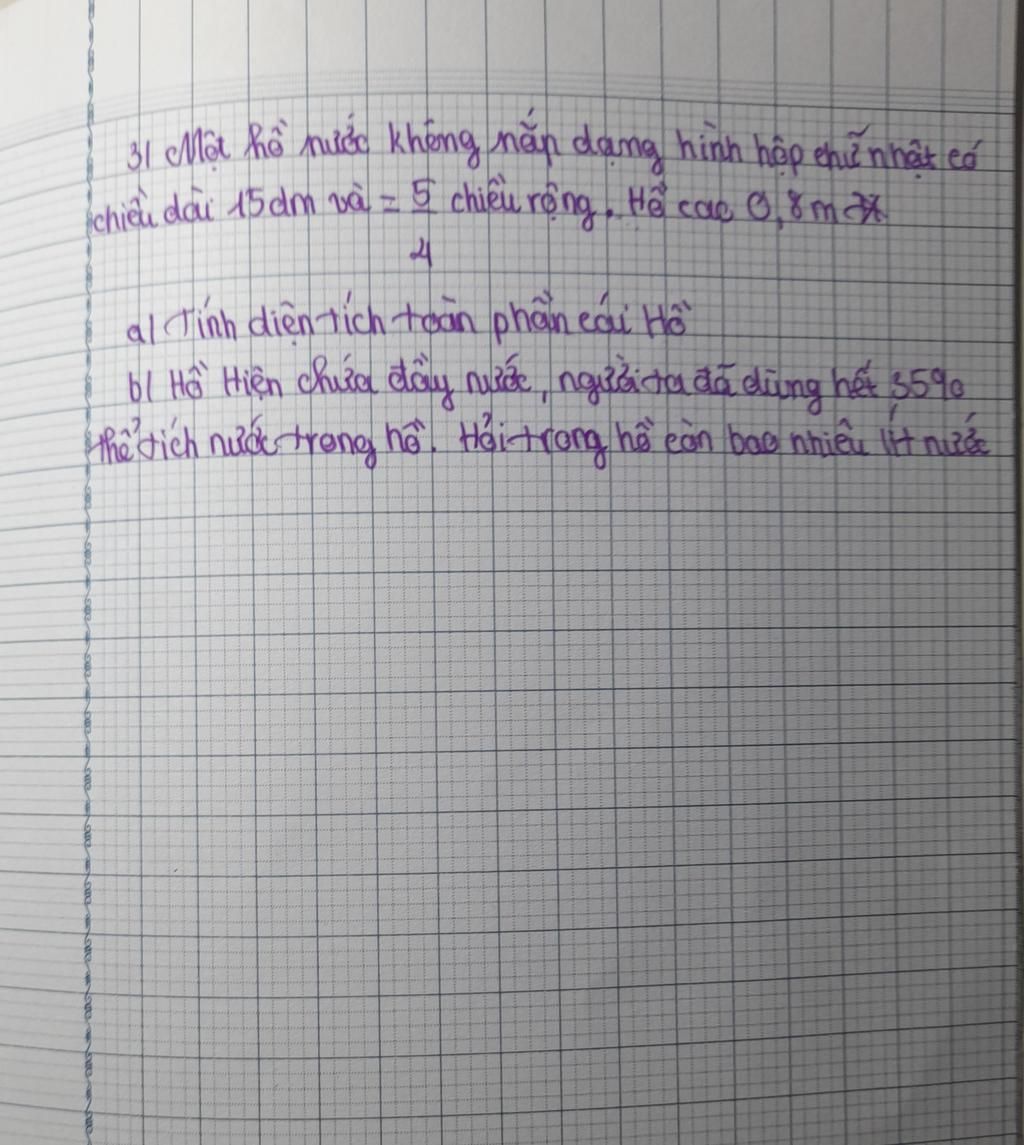 3/ Một hồ nước không nắp dạng hình hộp chữ nhật có
chiều dài 15dm và = 5/4 chiều rộng. Hồ cao 0,8m
a/ Tính diện tích toàn phần cái Hồ
b/ Hồ Hiện chứa đầy nước, người ta đã dùng hết 35%
thể tích nước trong hồ. Hỏi trong hồ còn bao nhiêu lít nước